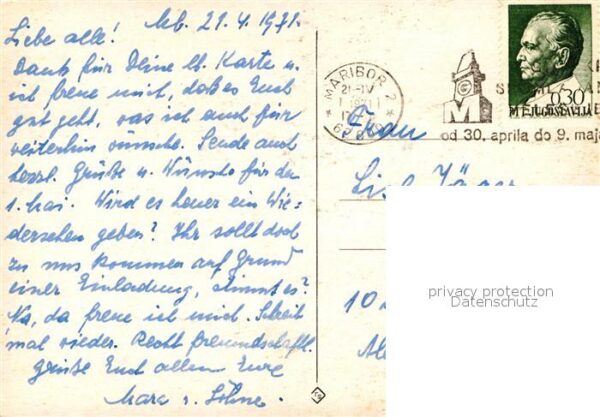 Mb. 21.4.1971.
Liebe alle!
Dank für Deine lb. Karte u.
ich freue mich, daß es Euch
gut geht, was ich auch für
weiterhin wünsche. Sende auch
herzl. Grüße u. Wünsche für den
1. Mai. Wird es heuer ein Wie-
dersehen geben? Ihr sollt doch
zu uns kommen auf Grund
einer Einladung, stimmt es?
Na, da freue ich mich. Schreib
mal wieder. Recht freundschaftl.
grüßt Euch allen Eure
Mara u. Söhne.
MARIBOR 2
21-IV
1971
0.30
JUGOSLAVIJA
od 30. aprila do 9. maja
Frau
Jäger
10
privacy protection
Datenschutz